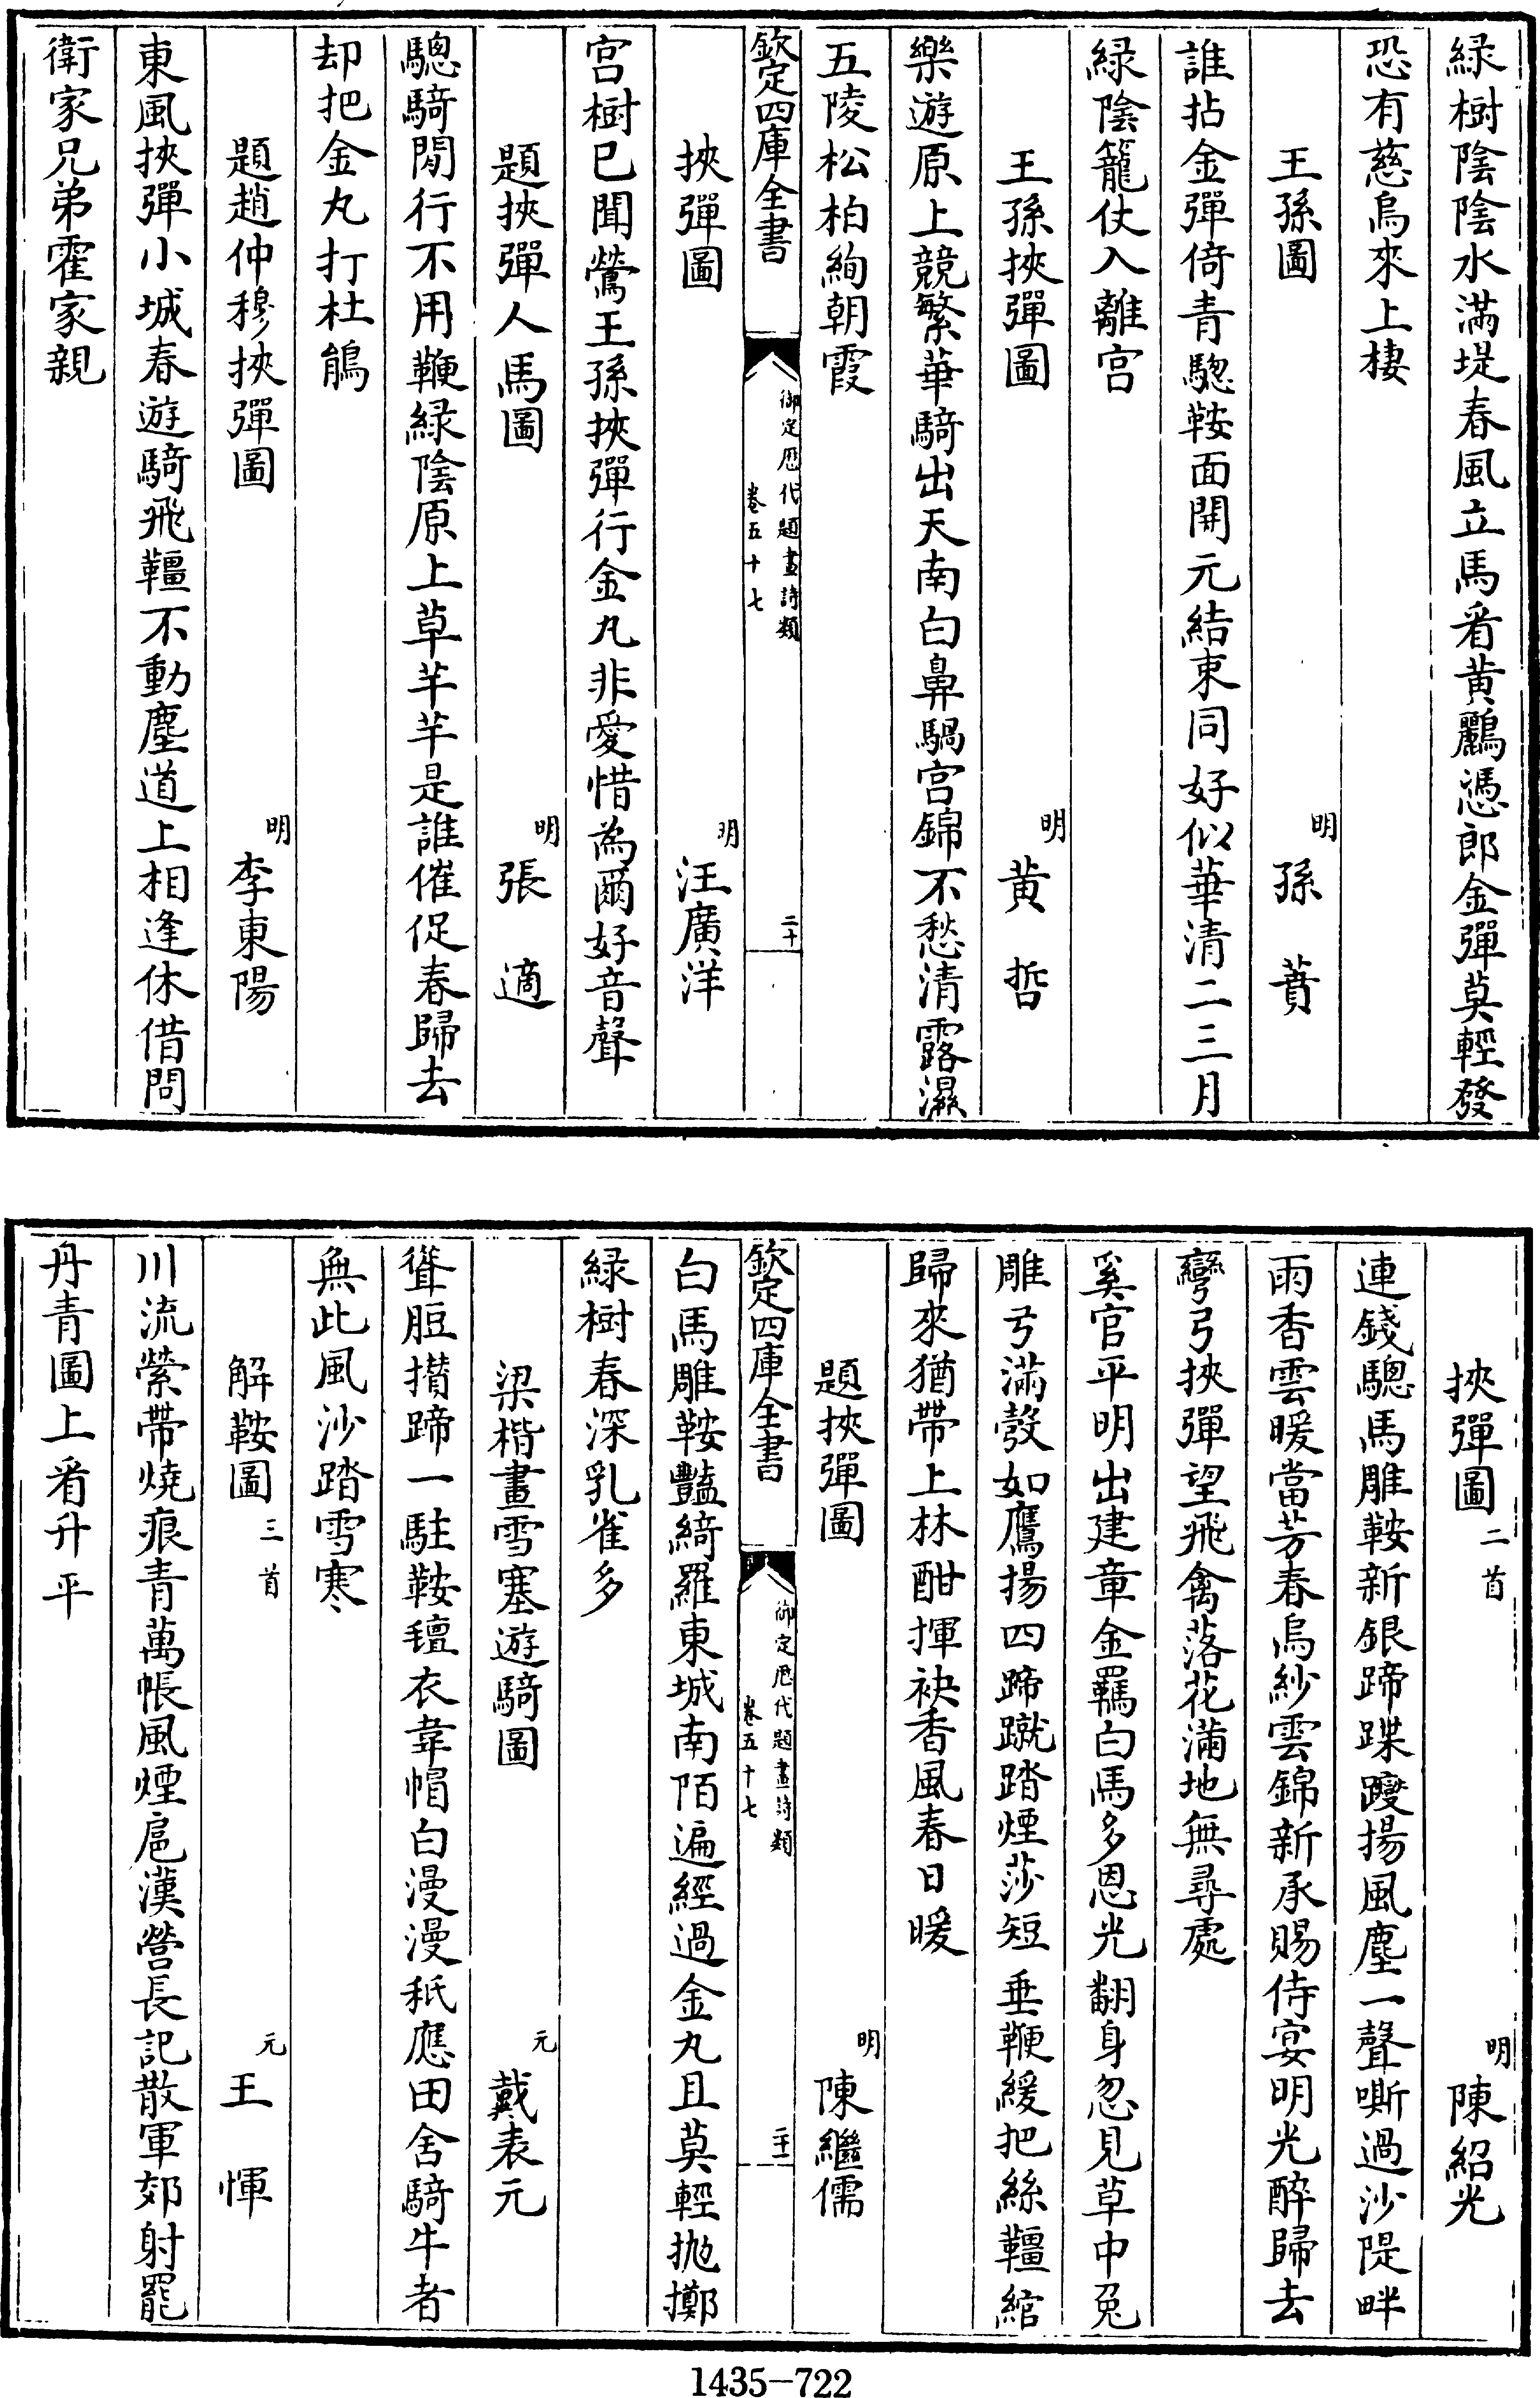 緑樹陰陰水滿堤春風立馬看黄鸝憑郎金彈莫輕發
恐有慈烏來上棲
王孫圖 明 孫蕡
誰拈金彈倚青驄鞍面開元結束同好似華清二三月
緑陰籠仗入離宫
王孫挾彈圖 明 黄哲
樂遊原上競繁華騎出天南白鼻騧宫錦不愁清露濕
五陵松柏絢朝霞
欽定四庫全書 御定歴代題畫詩類 卷五十七 二十
挾彈圖 明 汪廣洋
宫樹已聞鶯王孫挾彈行金丸非愛惜為爾好音聲
題挾彈人馬圖 明 張適
驄騎閒行不用鞭緑陰原上草芊芊是誰催促春歸去
却把金丸打杜鵑
題趙仲穆挾彈圖 明 李東陽
東風挾彈小城春遊騎飛韁不動塵道上相逢休借問
衛家兄弟霍家親
挾彈圖 二首 明 陳紹光
連錢驄馬雕鞍新銀蹄蹀躞揚風塵一聲嘶過沙隄畔
雨香雲暖當芳春烏紗雲錦新承賜侍宴明光醉歸去
彎弓挾彈望飛禽落花滿地無尋處
奚官平明出建章金羈白馬多恩光翻身忽見草中兎
雕弓滿彀如鷹揚四蹄蹴踏煙莎短垂鞭緩把絲韁綰
歸來猶帶上林酣揮袂香風春日暖
題挾彈圖 明 陳繼儒
欽定四庫全書 御定歴代題畫詩類 卷五十七 二十一
白馬雕鞍豔綺羅東城南陌遍經過金丸且莫輕抛擲
緑樹春深乳雀多
梁楷畫雪塞遊騎圖 元 戴表元
聳脰攢蹄一駐鞍氊衣韋帽白漫漫秖應田舍騎牛者
無此風沙踏雪寒
解鞍圖 三首 元 王惲
川流縈帶燒痕青萬帳風煙扈漢營長記散軍郊射罷
丹青圖上看升平
1435-722